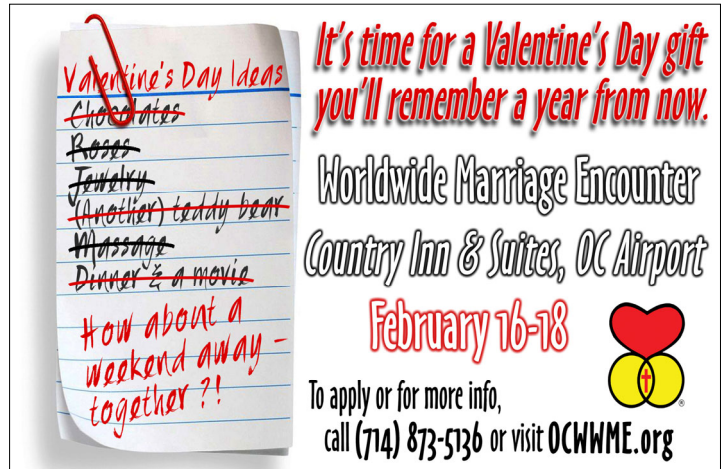 Valentine's Day Ideas
Chocolates
Roses
Jewelry
(Another) teddy bear
Massage
Dinner & a movie
How about a
weekend away -
together ?!
It's time for a Valentine's Day gift
you'll remember a year from now.
Worldwide Marriage Encounter
Country Inn & Suites, OC Airport
February 16-18
To apply or for more info,
call (714) 873-5136 or visit OCWWME.org
®